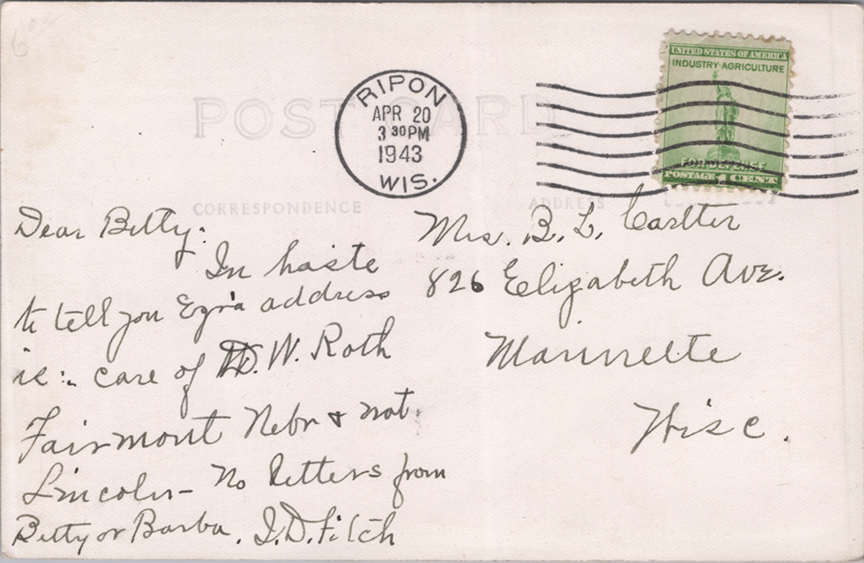 POST CARD
RIPON
APR 20
3 30 PM
1943
WIS.
UNITED STATES OF AMERICA
INDUSTRY·AGRICULTURE
FOR DEFENSE
POSTAGE 1 CENT
CORRESPONDENCE
ADDRESS
Dear Betty:
In haste
to tell you Ezra address
is:- care of D. W. Roth
Fairmont Nebr & not
Lincoln - No letters from
Betty or Barba. I.D. Fitch
Mrs. B. L.
826 Elizabeth Ave.
Marinette
Wisc.